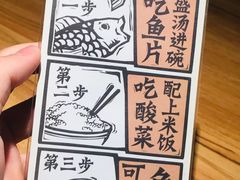 一步
盛汤进碗
吃鱼片
第二步
配上米饭
吃酸菜
第三步